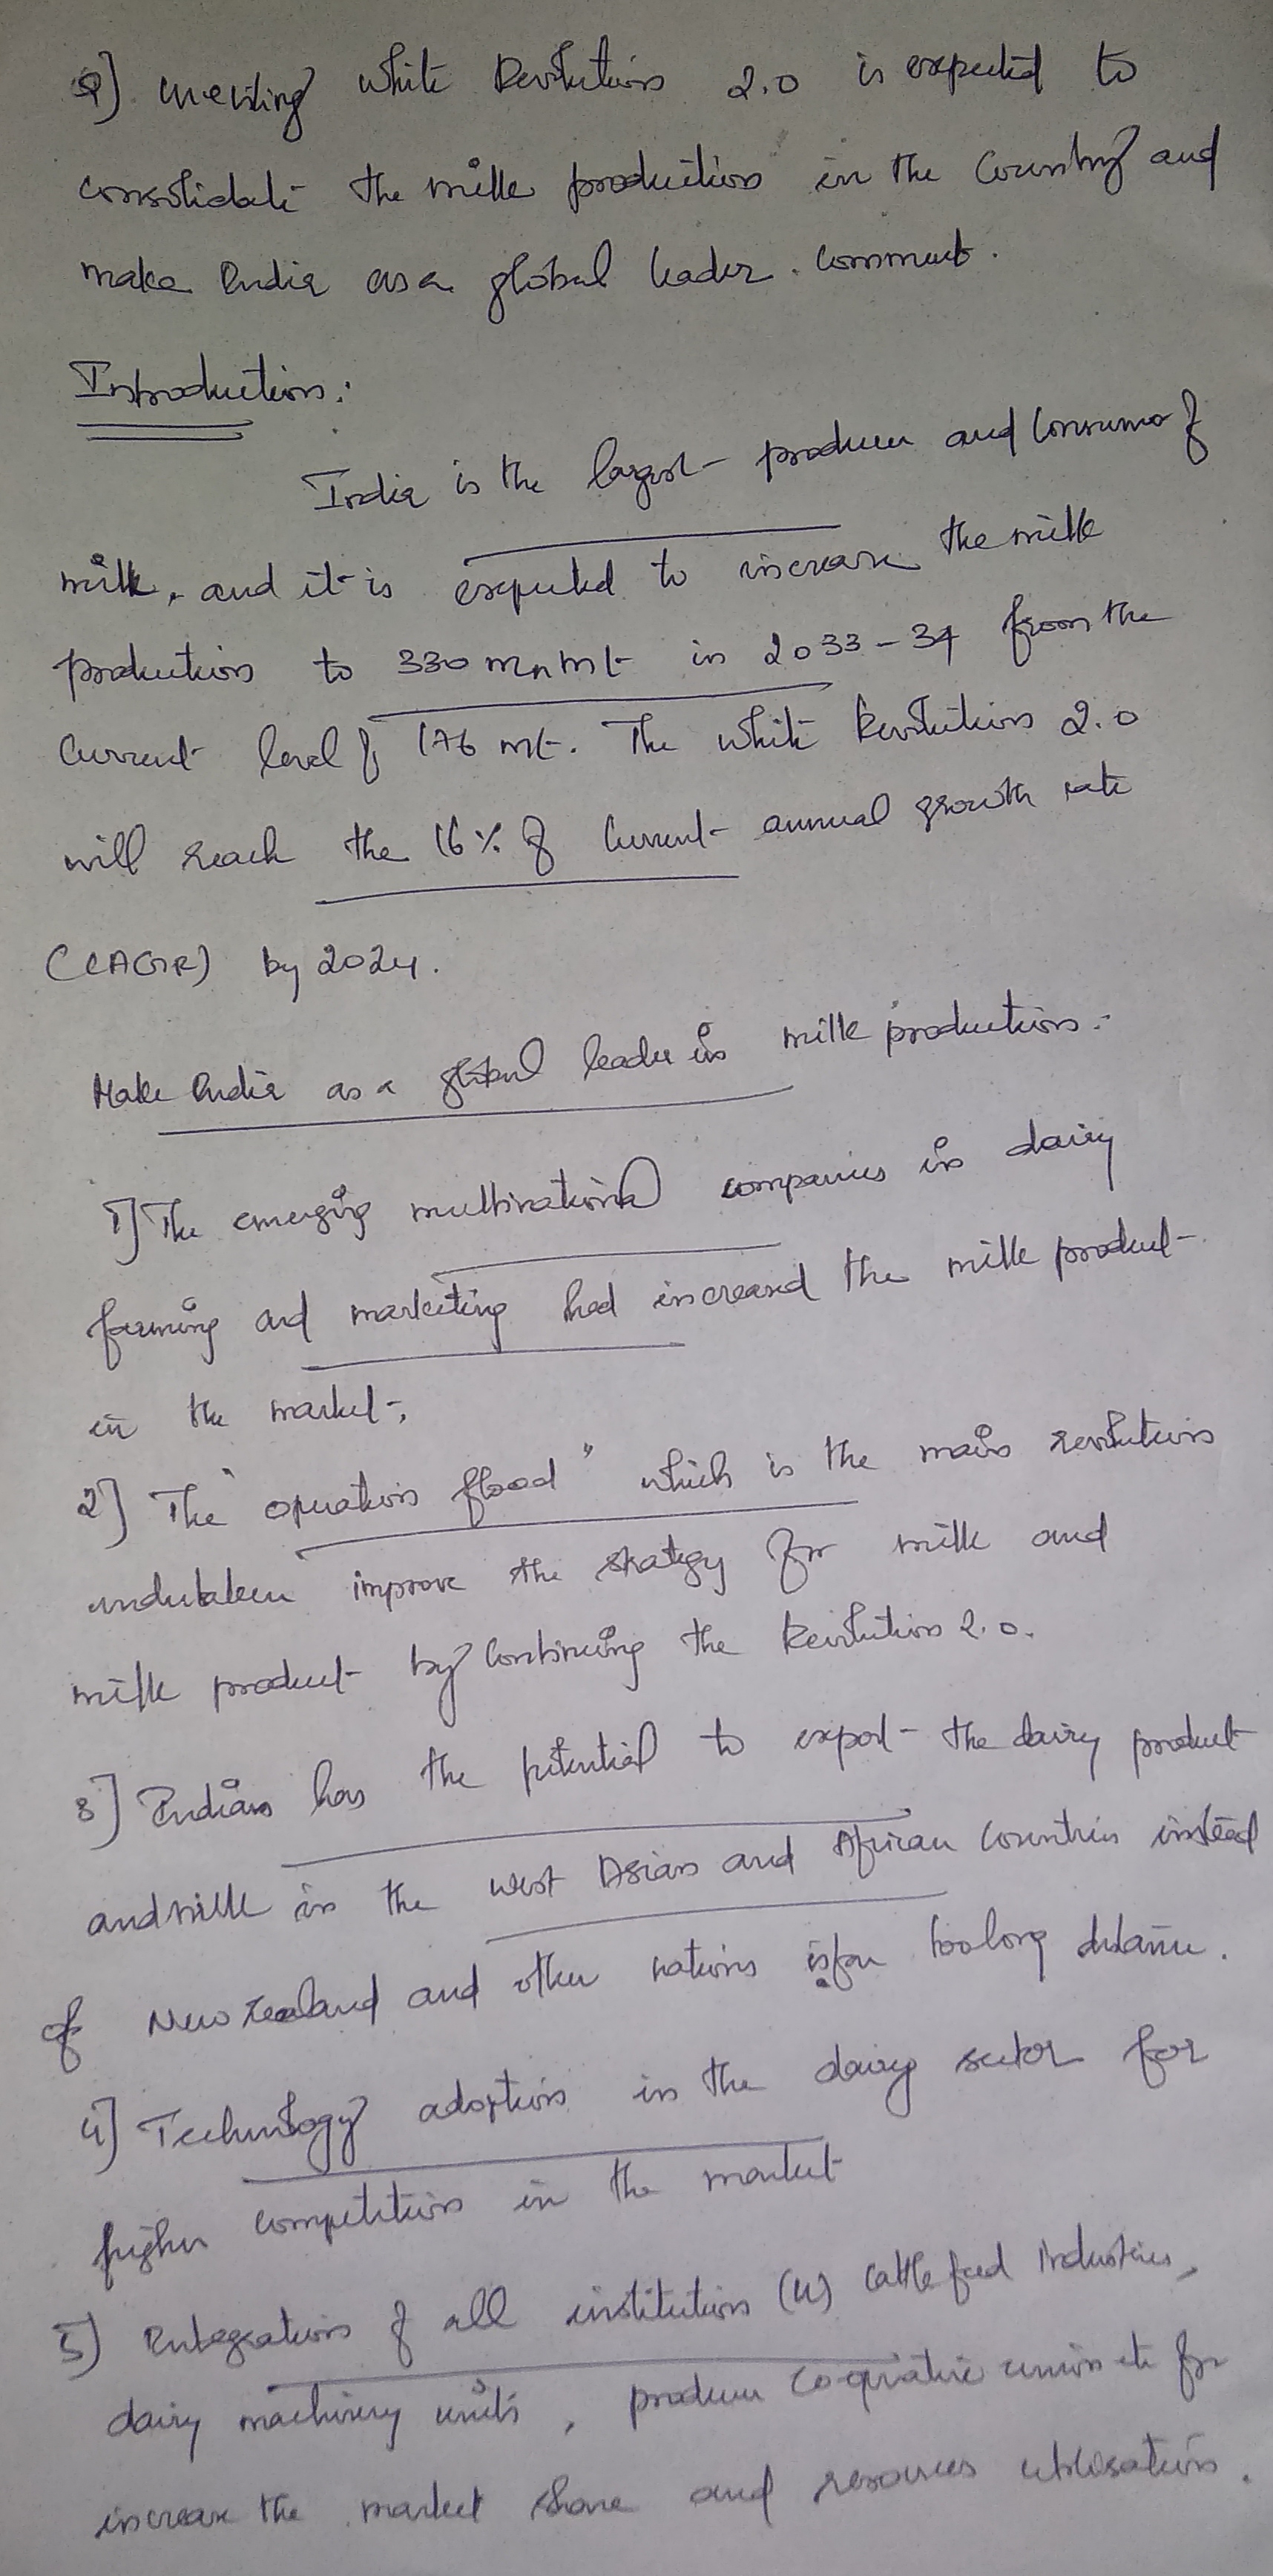 Q] White Revolution 2.0 is expected to
consolidate the milk production in the country and
make India as a global leader. Comment.
Introduction:
India is the largest producer and consumer of
milk, and it is expected to increase the milk
production to 330 mn mt in 2033-34 from the
current level of 176 mt. The White Revolution 2.0
will reach the 16% of current annual growth rate
(CAGR) by 2024.
Make India as a global leader in milk production:-
1] The emerging multinational companies in dairy
farming and marketing had increased the milk product
in the market.
2] The "operation flood" which is the main revolution
undertaken improve the strategy for milk and
milk product by continuing the Revolution 2.0.
3] Indian has the potential to export the dairy product
and milk in the West Asian and African countries instead
of New Zealand and other nations is far too long distance.
4] Technology adoption in the dairy sector for
higher competition in the market
5] Integration of all institution cattle feed industries,
dairy machinery units, producer co-operative union etc for
increase the market share and resources utilisation.